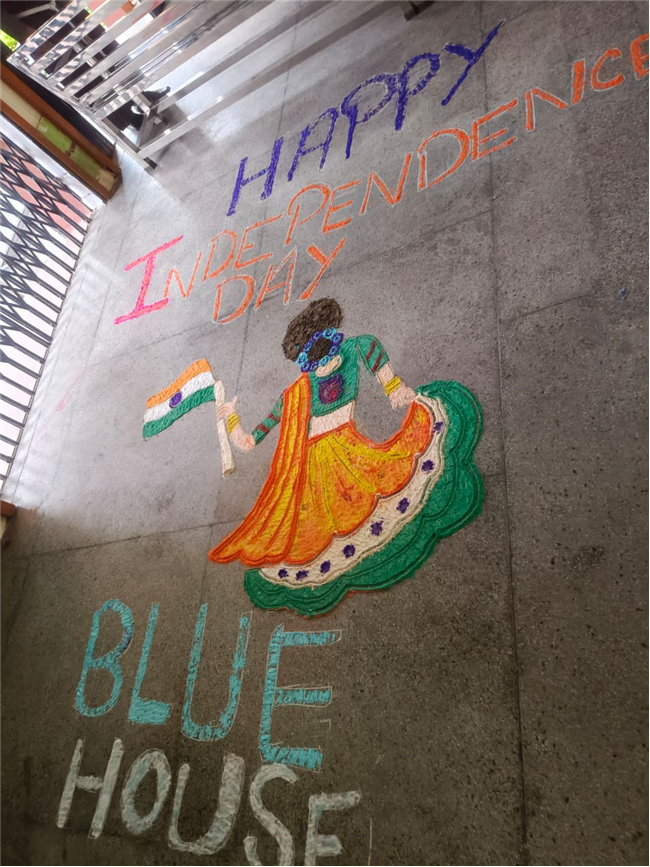 HAPPY
INDEPENDENCE
DAY
BLUE
HOUSE